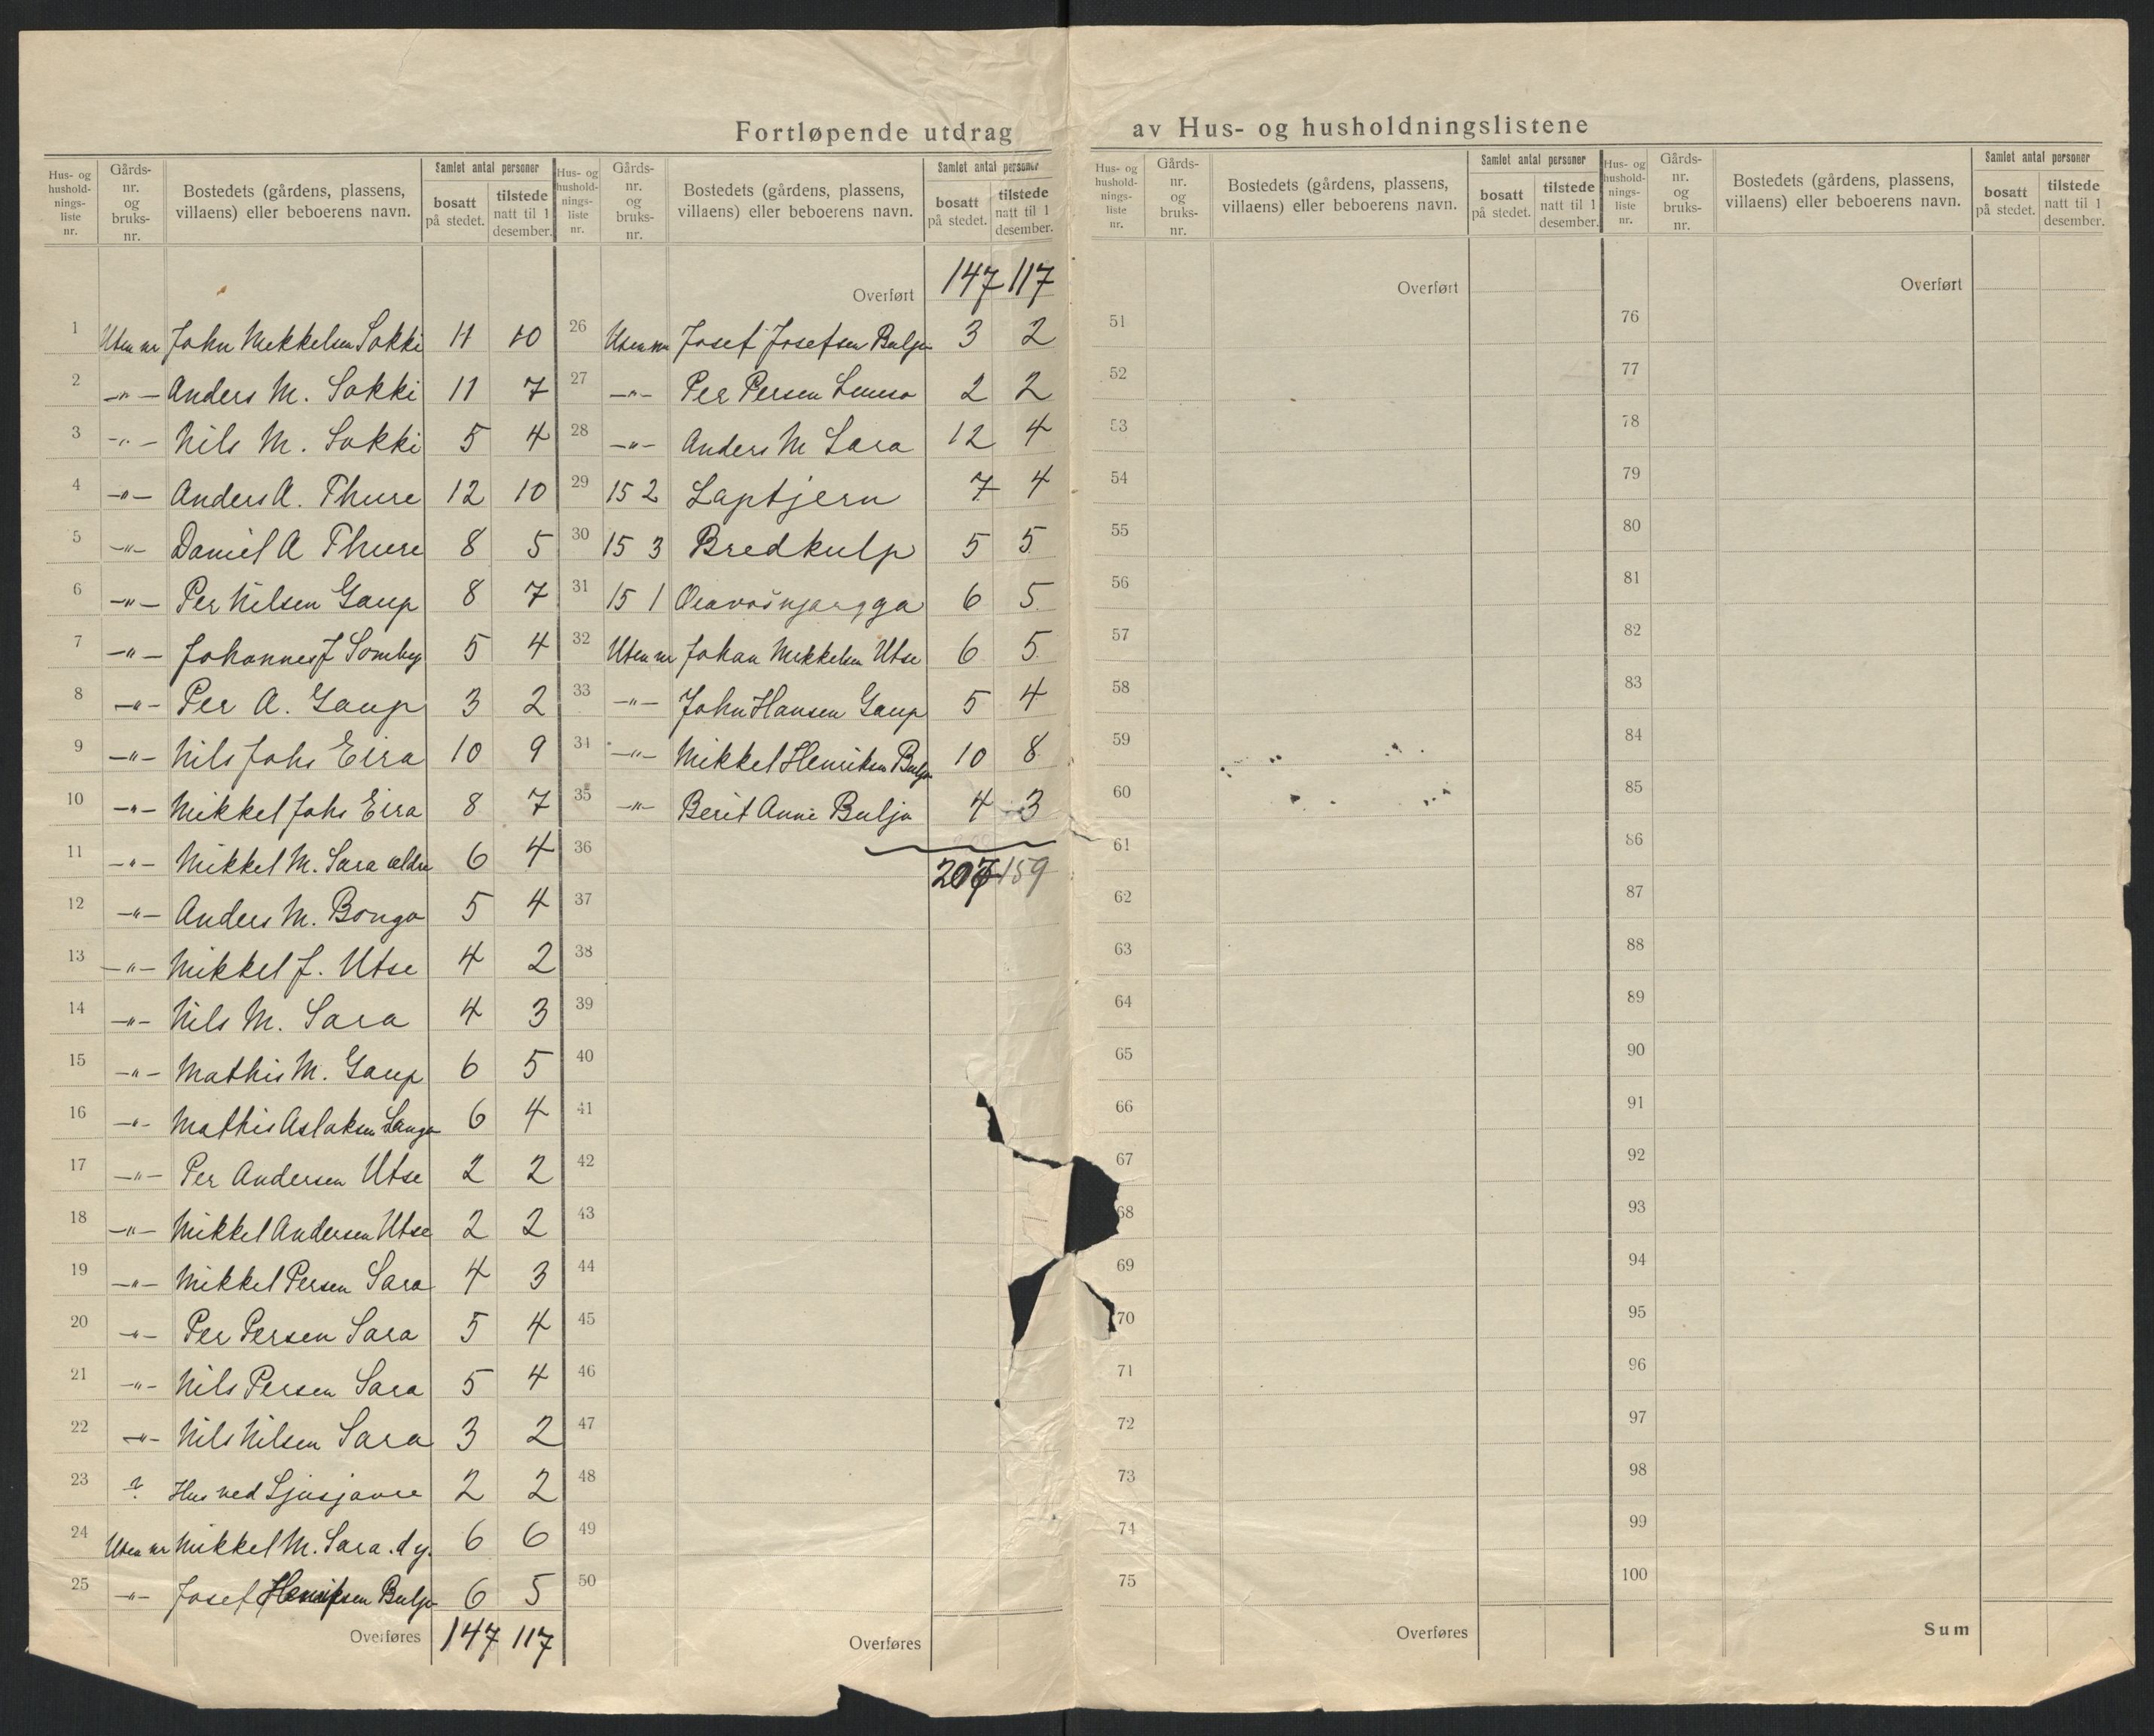 Fortløpende utdrag av Hus- og husholdningslistene
Hus- og hushold-nings-liste nr. | Gårds-nr. og bruks-nr. | Bostedets (gårdens, plassens, villaens) eller beboerens navn. | Samlet antal personer | bosatt på stedet. | tilstede natt til 1 desember.
1 Uten nr John Mekkelsen Sokki 11 10
2 —"— Anders M. Sokki 11 7
3 —"— Nils M. Sokki 5 4
4 —"— Anders A. Thure 12 10
5 —"— Daniel A Thure 8 5
6 —"— Per Nilsen Gaup 8 7
7 —"— Johannes J Somby 5 4
8 —"— Per A. Gaup 3 2
9 —"— Nils Johs Eira 10 9
10 —"— Mikkel Johs Eira 8 7
11 —"— Mikkel M. Sara ældre 6 4
12 —"— Anders M. Bongo 5 4
13 —"— Mikkel J. Utse 4 2
14 —"— Nils M. Sara 4 3
15 —"— Mathis M. Gaup 6 5
16 —"— Mathis Aslaksen 6 4
17 —"— Per Andersen Utse 2 2
18 —"— Mikkel Andersen Utse 2 2
19 —"— Mikkel Persen Sara 4 3
20 —"— Per Persen Sara 5 4
21 —"— Nils Persen Sara 5 4
22 —"— Nils Nilsen Sara 3 2
23 ? Hus ved 2 2
24 Uten nr Mikkel M. Sara. d y. 6 6
25 —"— Josef Henriksen Buljo 6 5
Overføres 147 117
Hus- og hushold-nings-liste nr. | Gårds-nr. og bruks-nr. | Bostedets (gårdens, plassens, villaens) eller beboerens navn. | Samlet antal personer | bosatt på stedet. | tilstede natt til 1 desember.
Overført 147 117
26 Uten nr Josef Josefsen Buljo 3 2
27 —"— Per Persen 2 2
28 —"— Anders M Sara 12 4
29 15 2 Laptjern 7 4
30 15 3 Bredkulp 5 5
31 15 1 6 5
32 Uten nr Johan Mikkelsen Utse 6 5
33 —"— John Hansen Gaup 5 4
34 —"— Mikkel Henriksen Buljo 10 8
35 —"— Berit Anne Buljo 4 3
36
207 159
37
38
39
40
41
42
43
44
45
46
47
48
49
50
Overføres
Hus- og hushold-nings-liste nr. | Gårds-nr. og bruks-nr. | Bostedets (gårdens, plassens, villaens) eller beboerens navn. | Samlet antal personer | bosatt på stedet. | tilstede natt til 1 desember.
Overført
51
52
53
54
55
56
57
58
59
60
61
62
63
64
65
66
67
68
69
70
71
72
73
74
75
Overføres
Hus- og hushold-nings-liste nr. | Gårds-nr. og bruks-nr. | Bostedets (gårdens, plassens, villaens) eller beboerens navn. | Samlet antal personer | bosatt på stedet. | tilstede natt til 1 desember.
Overført
76
77
78
79
80
81
82
83
84
85
86
87
88
89
90
91
92
93
94
95
96
97
98
99
100
Sum